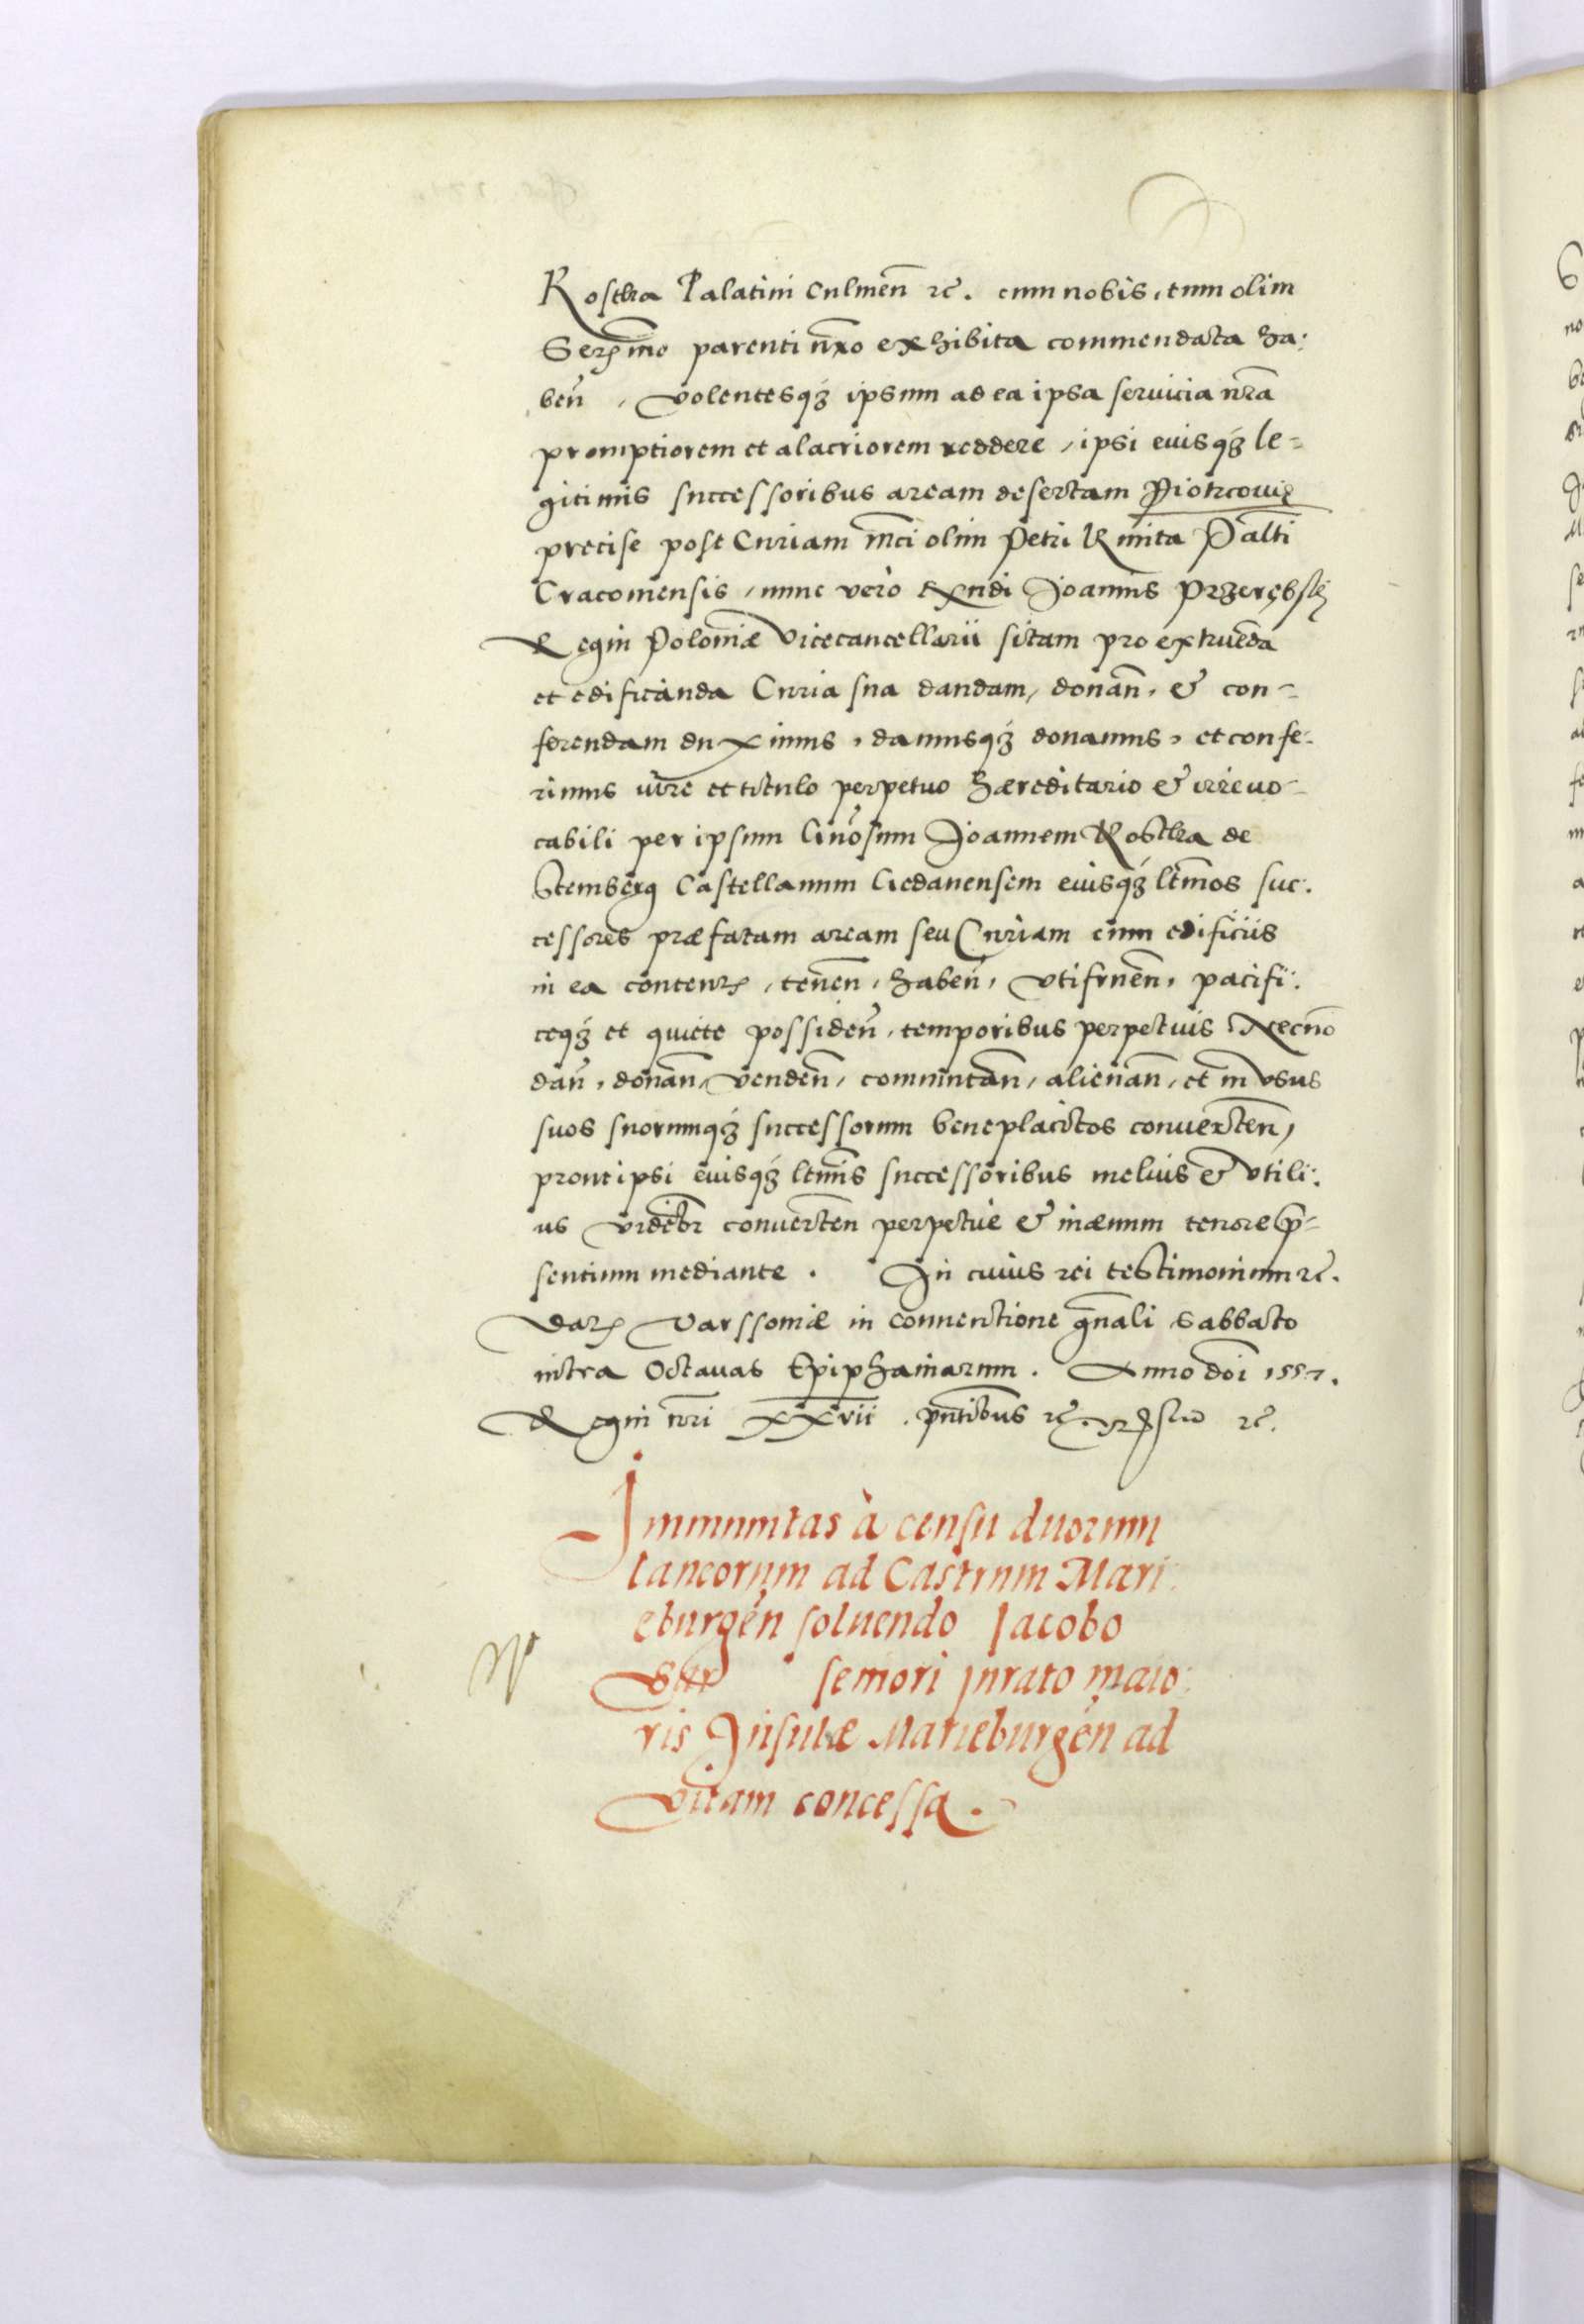 Rostka Palatini Culmen̄ ꝛc̄. cum nobis, tum olim
Serꝭmo parenti nr̄o exhibita commendata ha:
ben̄, volentesqꝫ ipsum ad ea ipsa servicia nr̄a
promptiorem et alacriorem reddere, ipsi eiusqꝫ le-
gitimis successoribus aream desertam Piotrcovię
precise post Curiam mc̄i olim Petri Kmita Palti
Cracoviensis, nunc vero Rx̄ndi Joannis Przerębskj
Regni Poloniæ Vicecancellarii sitam pro extruēda
et edificanda Curia sua dandam, donan̄, & con-
ferendam duximus, damusqꝫ donamus, et confe-
rimus iure et titulo perpetuo hæreditario & irrevo-
cabili per ipsum Gn̄osum Joannem Kostka de
Stemberg Castellanum Gedanensem eiusqꝫ ltm̄os suc:
cessores præfatam aream seu Curiam cum edificiis
in ea contentꝭ, tenen̄, haben̄, utifruen̄, pacifi:
ceqꝫ et quiete possiden̄, temporibus perpetuis Necnō
dan̄, donan̄, venden̄, commutan̄, alienan̄, et in usus
suos suorumqꝫ successorum beneplacitos converten̄,
prout ipsi eiusqꝫ ltm̄is successoribus melius & utili:
us videbr̄ converten̄ perpetue & inævum tenore pn̄-
sentium mediante. In cuius rei testimonium ꝛc̄.
Datꝭ Varssoviæ in conventione gn̄ali sabbato
intra Octavas Epiphaniarum. Anno doī 1557.
Regni nr̄i xxvii. pn̄tibus ꝛc̄. ꝛc̄.
Immunitas à censu duorum
laneorum ad Castrum Mari:
eburgen̄ solvendo Jacobo
seniori jurato maio:
ris Insulæ Marieburgen̄ ad
vitam concessa.